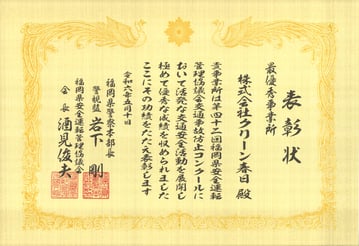 表彰状
最優秀事業所
株式会社クリーン春日 殿
貴事業所は第四十二回福岡県安全運転
管理協議会交通事故防止コンクールに
おいて活発な交通安全活動を展開し
極めて優秀な成績を収められました
ここにその功績をたたえ表彰します
令和六年五月十日
福岡県警察本部長
警視監 岩下 剛
福岡県安全運転管理協議会
会長 酒見俊夫